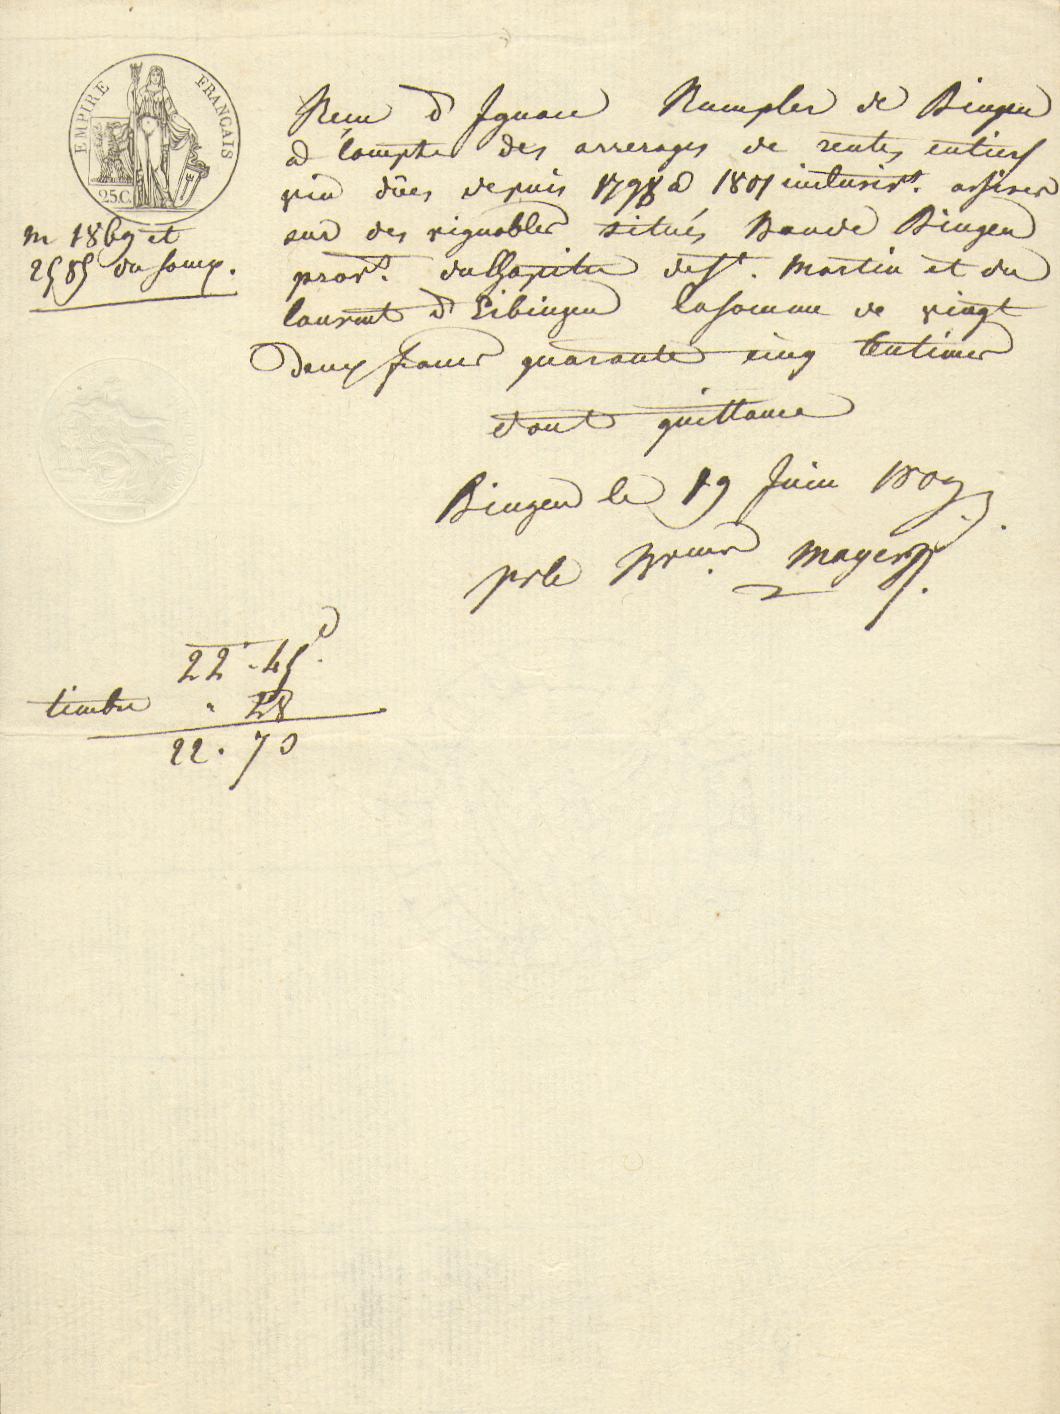 EMPIRE FRANÇAIS
25 C.
Reçu d'Ignace Rumpler de Bingen
à Compte des arrerages de rentes en tiers
vin dûes depuis 1798 à 1801 inclusivt. assises
sur des vignobles situés Bande Bingen
provt. du Chapitre de St. Martin et du
Couvent d'Eibingen la somme de vingt
Deux francs quarante cinq Centimes
dont quittance
Bingen le 19 Juin 1809.
pr le Mayer
n 1869 et
2585 du Somm.
22 . 45 c
timbre " 25
22 . 70